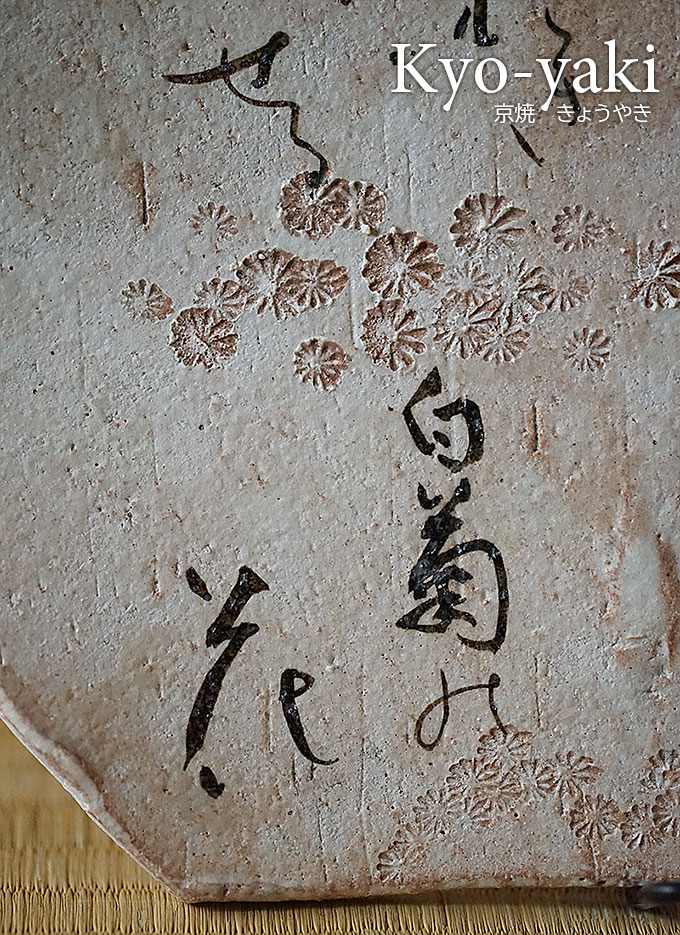 Kyo-yaki
京焼　きょうやき
せる
白菊の
花